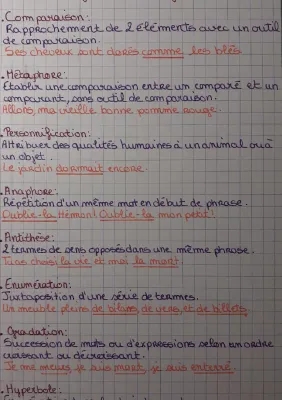 .Comparaison:
Rapprochement de 2 éléments avec un outil
de comparaison.
Ses cheveux sont dorés comme les blés
.Métaphore:
Etablir une comparaison entre un comparé et un
comparant, sans outil de comparaison.
Allons, ma vieille bonne pomme rouge.
.Personnification:
Attribuer des qualités humaines à un animal ou à
un objet.
Le jardin dormait encore.
.Anaphore:
Répétition d'un même mot en début de phrase.
Oublie-la Hémon! Oublie-la mon petit!
.Antithèse:
2 termes de sens opposés dans une même phrase.
Tu as choisi la vie et moi la mort.
.Enumération:
Juxtaposition d'une série de termes.
Un meuble pleins de bilans de vers, et de billets.
.Gradation:
Succession de mots ou d'expressions selon un ordre
croissant ou décroissant.
Je me meurs, je suis mort, je suis enterré.
.Hyperbole: